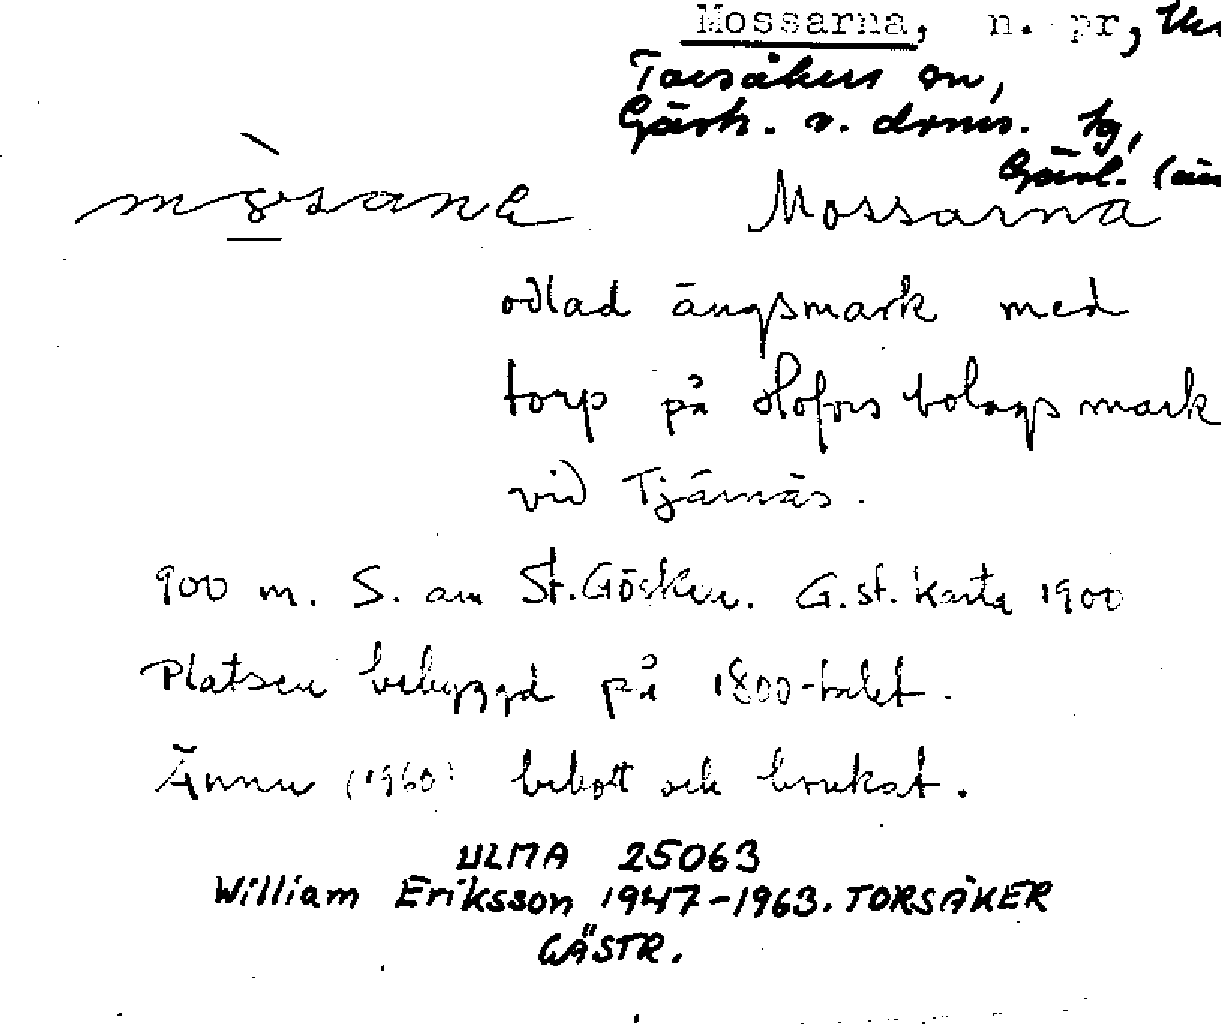 Mossarna, n. pr,
Torsåkers sn,
Gästr. v. doms. tg,
Gävl.
Mossarna
odlad ängsmark med
torp på Hofors bolags mark
vid Tjärnäs.
900 m. S. om St. Gösken. G.st. karta 1900
Platsen bebyggd på 1800-talet.
Ännu (1960) bebott och brukat.
ULMA 25063
William Eriksson 1947-1963. TORSÅKER
GÄSTR.